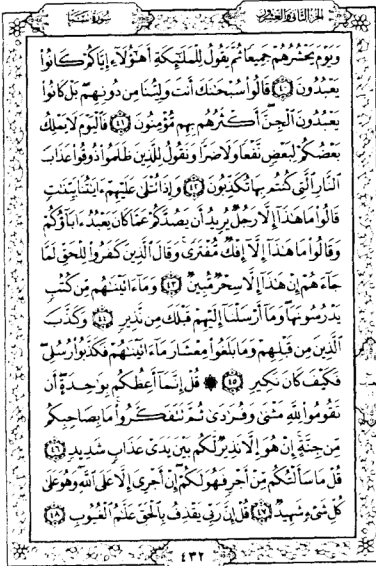 الجزء الثاني والعشرون سورة سبأ
وَيَوْمَ يَحْشُرُهُمْ جَمِيعًا ثُمَّ يَقُولُ لِلْمَلَٰٓئِكَةِ أَهَٰٓؤُلَآءِ إِيَّاكُمْ كَانُوا۟
يَعْبُدُونَ ﴿٤٠﴾ قَالُوا۟ سُبْحَٰنَكَ أَنتَ وَلِيُّنَا مِن دُونِهِم بَلْ كَانُوا۟
يَعْبُدُونَ ٱلْجِنَّ أَكْثَرُهُم بِهِم مُّؤْمِنُونَ ﴿٤١﴾ فَٱلْيَوْمَ لَا يَمْلِكُ
بَعْضُكُمْ لِبَعْضٍ نَّفْعًا وَلَا ضَرًّا وَنَقُولُ لِلَّذِينَ ظَلَمُوا۟ ذُوقُوا۟ عَذَابَ
ٱلنَّارِ ٱلَّتِى كُنتُم بِهَا تُكَذِّبُونَ ﴿٤٢﴾ وَإِذَا تُتْلَىٰ عَلَيْهِمْ ءَايَٰتُنَا بَيِّنَٰتٍ
قَالُوا۟ مَا هَٰذَآ إِلَّا رَجُلٌ يُرِيدُ أَن يَصُدَّكُمْ عَمَّا كَانَ يَعْبُدُ ءَابَآؤُكُمْ
وَقَالُوا۟ مَا هَٰذَآ إِلَّآ إِفْكٌ مُّفْتَرًى وَقَالَ ٱلَّذِينَ كَفَرُوا۟ لِلْحَقِّ لَمَّا
جَآءَهُمْ إِنْ هَٰذَآ إِلَّا سِحْرٌ مُّبِينٌ ﴿٤٣﴾ وَمَآ ءَاتَيْنَٰهُم مِّن كُتُبٍ
يَدْرُسُونَهَا وَمَآ أَرْسَلْنَآ إِلَيْهِمْ قَبْلَكَ مِن نَّذِيرٍ ﴿٤٤﴾ وَكَذَّبَ
ٱلَّذِينَ مِن قَبْلِهِمْ وَمَا بَلَغُوا۟ مِعْشَارَ مَآ ءَاتَيْنَٰهُمْ فَكَذَّبُوا۟ رُسُلِى
فَكَيْفَ كَانَ نَكِيرِ ﴿٤٥﴾ ۞ قُلْ إِنَّمَآ أَعِظُكُم بِوَٰحِدَةٍ أَن
تَقُومُوا۟ لِلَّهِ مَثْنَىٰ وَفُرَٰدَىٰ ثُمَّ تَتَفَكَّرُوا۟ مَا بِصَاحِبِكُم
مِّن جِنَّةٍ إِنْ هُوَ إِلَّا نَذِيرٌ لَّكُم بَيْنَ يَدَىْ عَذَابٍ شَدِيدٍ ﴿٤٦﴾
قُلْ مَا سَأَلْتُكُم مِّنْ أَجْرٍ فَهُوَ لَكُمْ إِنْ أَجْرِىَ إِلَّا عَلَى ٱللَّهِ وَهُوَ عَلَىٰ
كُلِّ شَىْءٍ شَهِيدٌ ﴿٤٧﴾ قُلْ إِنَّ رَبِّى يَقْذِفُ بِٱلْحَقِّ عَلَّٰمُ ٱلْغُيُوبِ ﴿٤٨﴾
٤٣٢